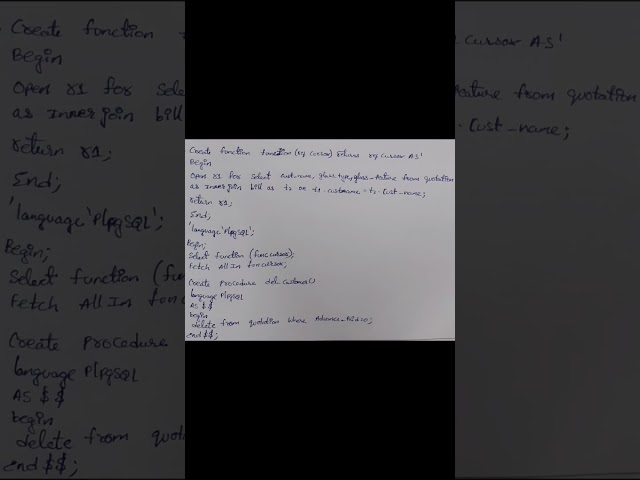 Create function function (ref cursor) returns ref cursor AS'
Begin
Open r1 for select cust-name, glass type, glass-texture from quotation
as inner join bill as t2 on t1.custname = t2.cust_name;
return r1;
End;
'language 'PlpgSQL';
Begin;
Select function (funccursor);
Fetch All In funcursor;
Create Procedure del_customer()
language PlpgSQL
AS $$
begin
delete from quotation where Advance_Paid=0;
end $$;